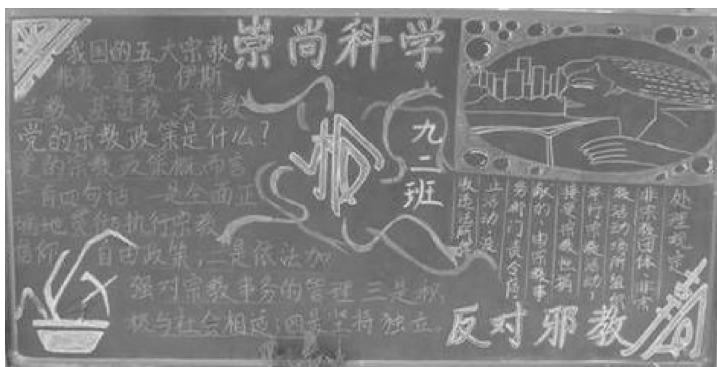 崇尚科学
我国的五大宗教
佛教、道教、伊斯
兰教、基督教、天主教
党的宗教政策是什么?
党的宗教政策概而言
之有四句话:一是全面正
确地贯彻执行宗教
信仰自由政策,二是依法加
强对宗教事务的管理 三是积
极与社会相适 四是坚持独立。
九二班
处理规定
非宗教团体、非宗
教活动场所组织
举行宗教活动,
接受宗教捐
献的,由宗教事
务部门责令停
止活动,没
收违法所得
反对邪教